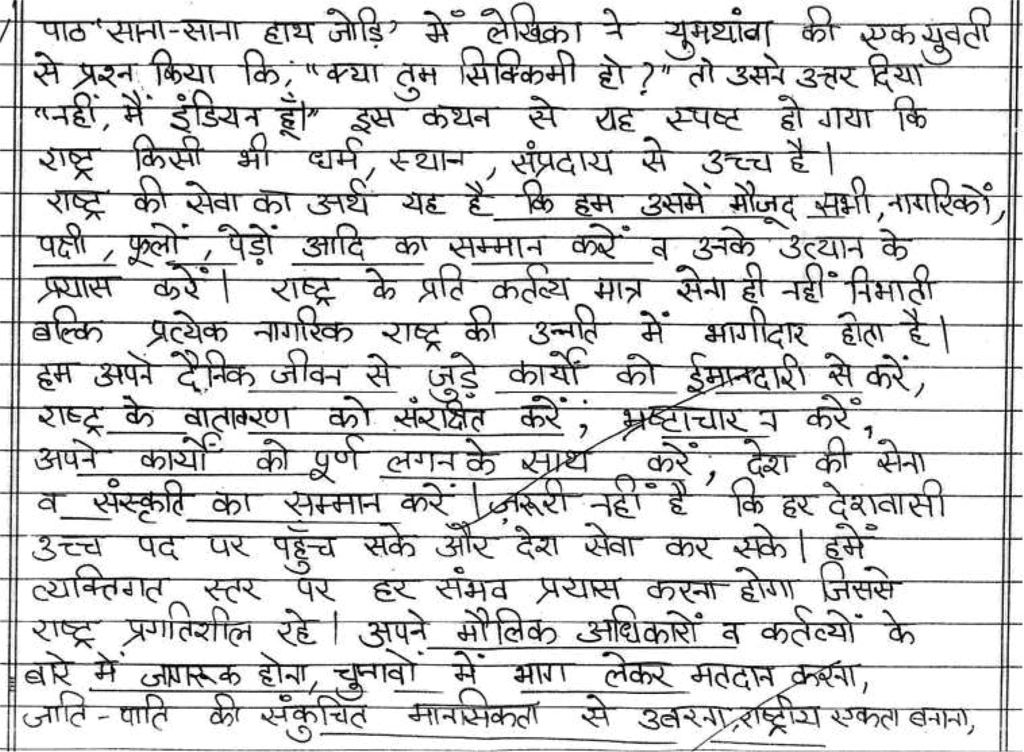 पाठ "साना-साना हाथ जोड़ि' में लेखिका ने युमथांबा की एक युवती
से प्रश्न किया कि, "क्या तुम सिक्किमी हो?" तो उसने उत्तर दिया
"नहीं, मैं इंडियन हूँ।" इस कथन से यह स्पष्ट हो गया कि
राष्ट्र किसी भी धर्म, स्थान, संप्रदाय से उच्च है।
राष्ट्र की सेवा का अर्थ यह है कि हम उसमें मौजूद सभी, नागरिकों,
पक्षी, फूलों, पेड़ों आदि का सम्मान करें व उनके उत्थान के
प्रयास करें। राष्ट्र के प्रति कर्तव्य मात्र सेना ही नहीं निभाती
बल्कि प्रत्येक नागरिक राष्ट्र की उन्नति में भागीदार होता है।
हम अपने दैनिक जीवन से जुड़े कार्यों को ईमानदारी से करें,
राष्ट्र के वातावरण को संरक्षित करें, भ्रष्टाचार न करें,
अपने कार्यों को पूर्ण लगन के साथ करें, देश की सेना
व संस्कृति का सम्मान करें। ज़रूरी नहीं है कि हर देशवासी
उच्च पद पर पहुँच सके और देश सेवा कर सके। हमें
व्यक्तिगत स्तर पर हर संभव प्रयास करना होगा जिससे
राष्ट्र प्रगतिशील रहे। अपने मौलिक अधिकारों व कर्तव्यों के
बारे में जागरूक होना, चुनावों में भाग लेकर मतदान करना,
जाति-पाति की संकुचित मानसिकता से उबरना, राष्ट्रीय एकता बनाना,